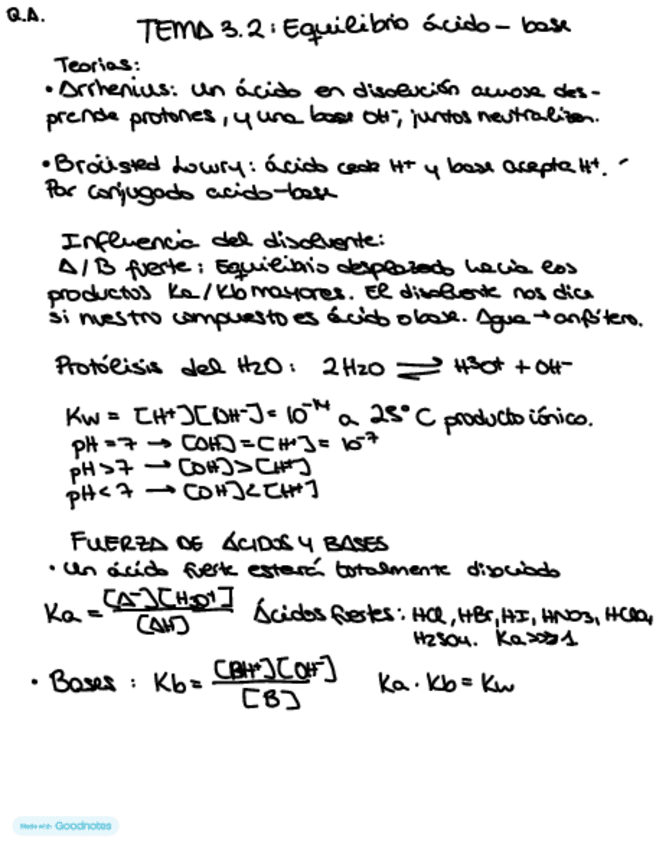 Q.A.
TEMA 3.2: Equilibrio ácido - base
Teorías:
• Arrhenius: un ácido en disolución acuosa des-
prende protones, y una base OH⁻, juntos neutralizan.
• Bronsted Lowry: ácido cede H⁺ y base acepta H⁺.
Par conjugado acido-base
Influencia del disolvente:
A/B fuerte: Equilibrio desplazado hacia los
productos Ka/Kb mayores. El disolvente nos dice
si nuestro compuesto es ácido o base. Agua → anfótero.
Protólisis del H2O: 2H2O ⇌ H3O⁺ + OH⁻
Kw = [H⁺][OH⁻] = 10⁻¹⁴ a 25°C producto iónico.
pH = 7 → [OH⁻] = [H⁺] = 10⁻⁷
pH > 7 → [OH⁻] > [H⁺]
pH < 7 → [OH⁻] < [H⁺]
FUERZA DE ÁCIDOS Y BASES
• Un ácido fuerte estará totalmente disociado
Ka = [A⁻][H3O⁺] / [AH] Ácidos fuertes: HCl, HBr, HI, HNO3, HClO4,
H2SO4. Ka>>>1
• Bases: Kb = [BH⁺][OH⁻] / [B] Ka · Kb = Kw
Made with Goodnotes